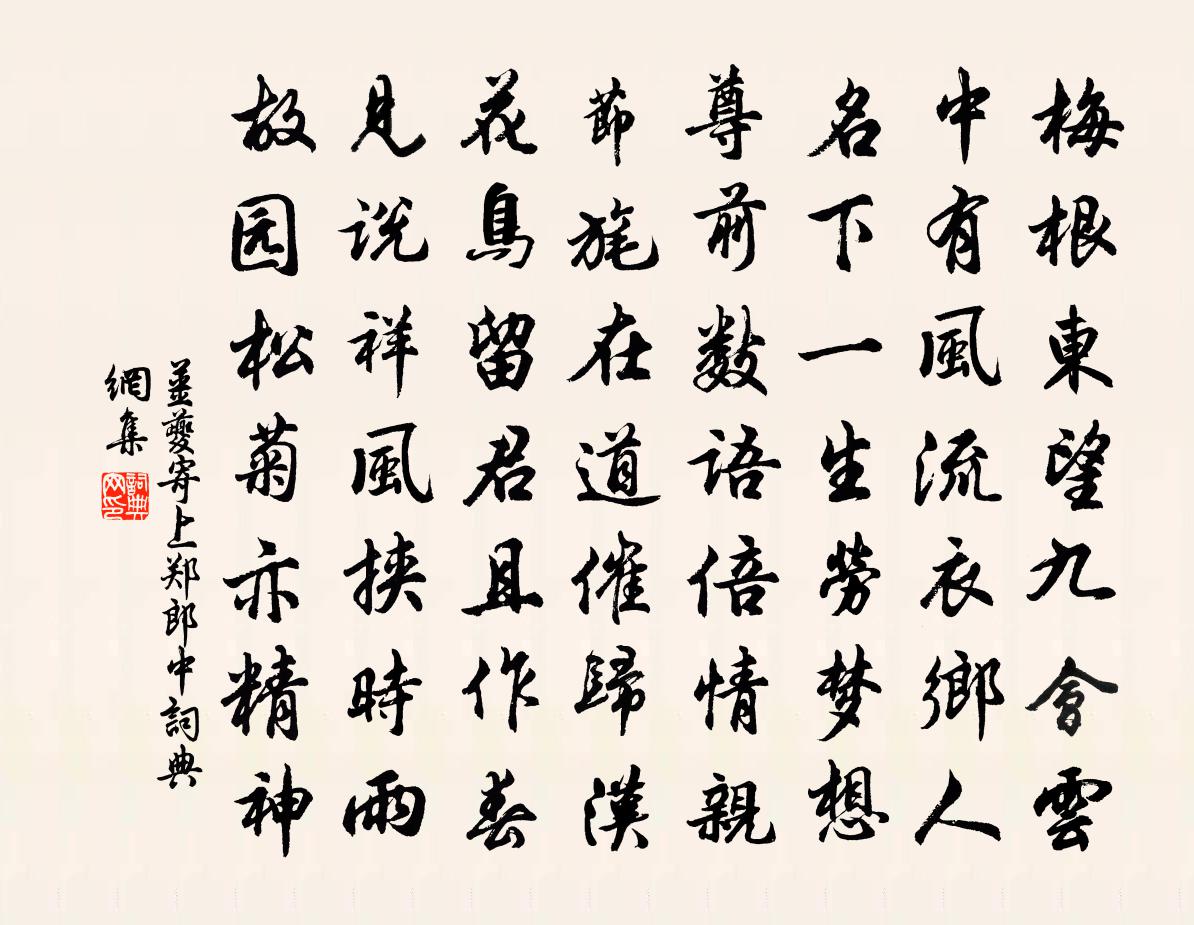 梅根東望九會雲
中有風流衣鄉人
名下一生勞梦想
尊前數語倍情親
節旄在道催歸漢
花鳥留君且作春
見說祥風挾時雨
故园松菊亦精神
姜夔寄上郑郎中詞典
網集
詞典
网印